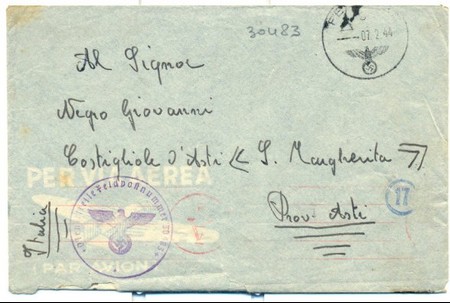 30483
07.2.44
Al Signor
Negro Giovanni
Costigliole d'Asti (S. Margherita)
PER VIA AEREA
17
Prov. Asti
Italia
(PAR AVION)